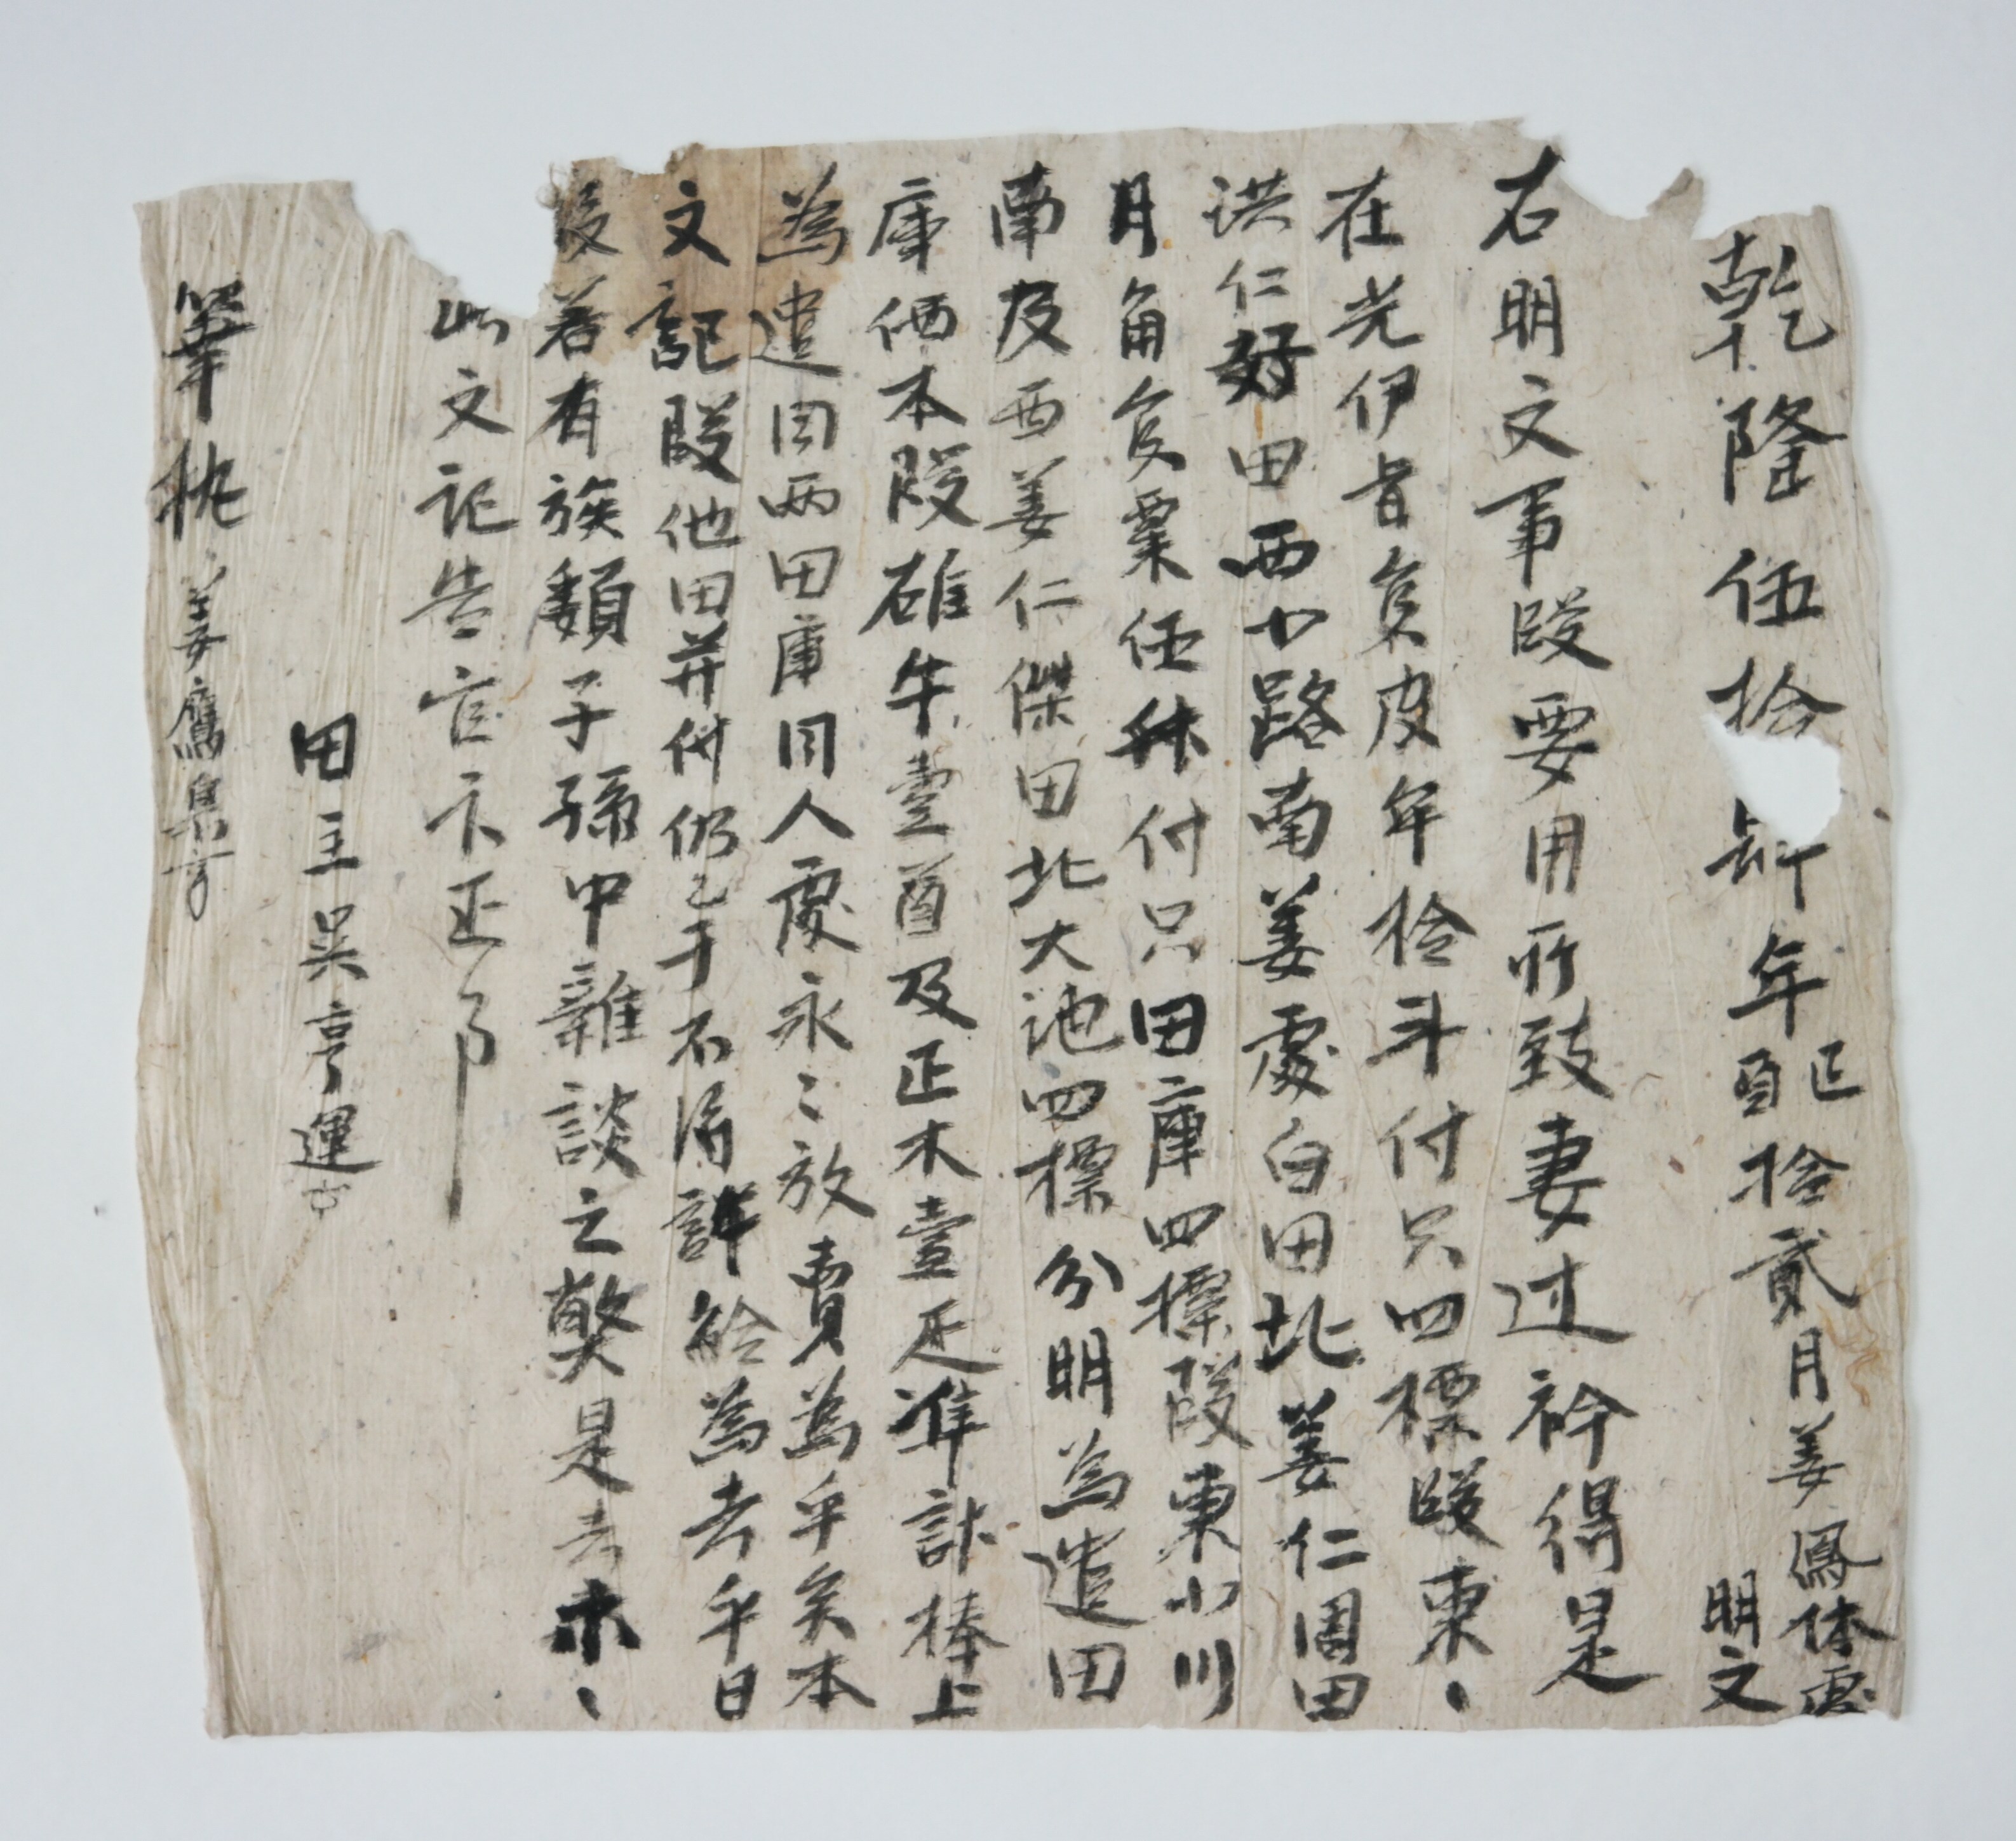 乾隆伍拾 卯年正酉拾貳月姜鳳体處
明文
右明文事段要用所致妻过衿得是
在光伊旨員皮年拾斗付只四標段東丶
洪仁好田西小路南姜處白田北姜仁周田
月角員粟伍升付只田庫四標段東小川
南及西姜仁傑田北大池四標分明為遣田
庫価本段雄牛壹首及正木壹疋準計捧上
為遣同両田庫同人處永〻放賣為乎矣本
文記段他田并付仍乙于不得許給為去乎日
後若有族類子孫中雜談之弊是去木丶
此文記告官卞正印
田主吳亨運
筆執姜鷹